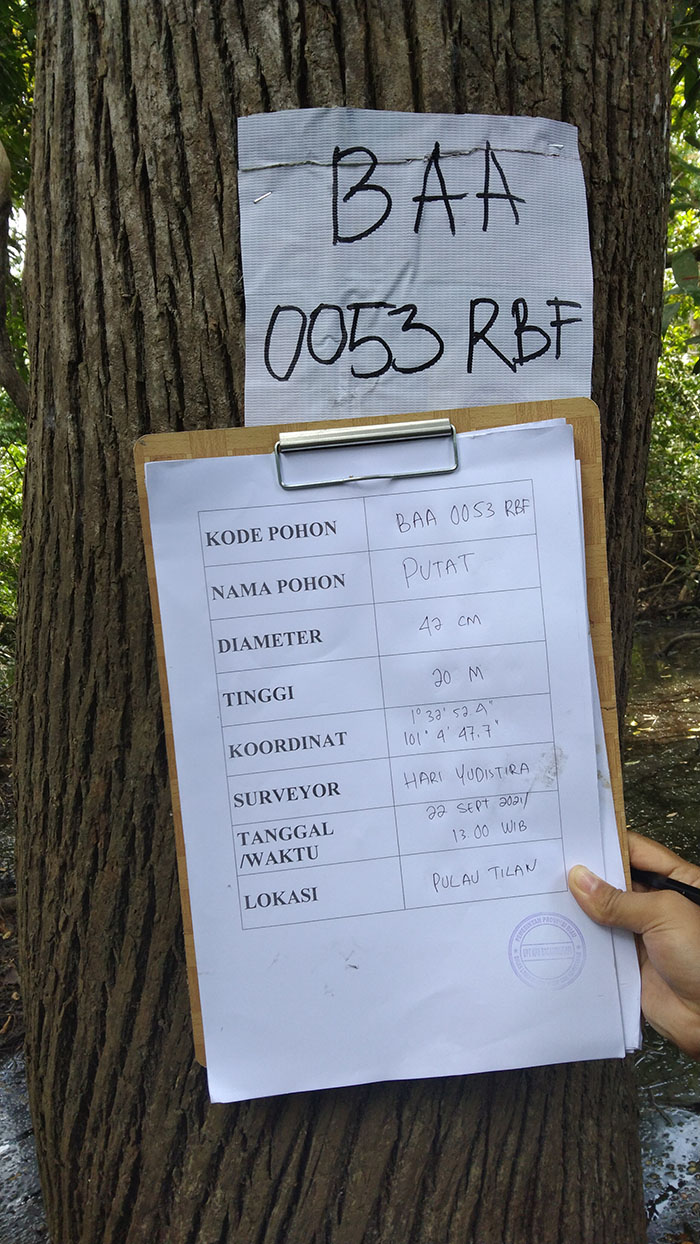 BAA
0053 RBF
KODE POHON BAA 0053 RBF
NAMA POHON PUTAT
DIAMETER 42 CM
TINGGI 20 M
KOORDINAT 1° 32' 52.4"
101° 4' 47.7"
SURVEYOR HARI YUDISTIRA
TANGGAL 22 SEPT 2021/
/WAKTU 13 00 WIB
LOKASI PULAU TILAN
PEMERINTAH PROVINSI RIAU